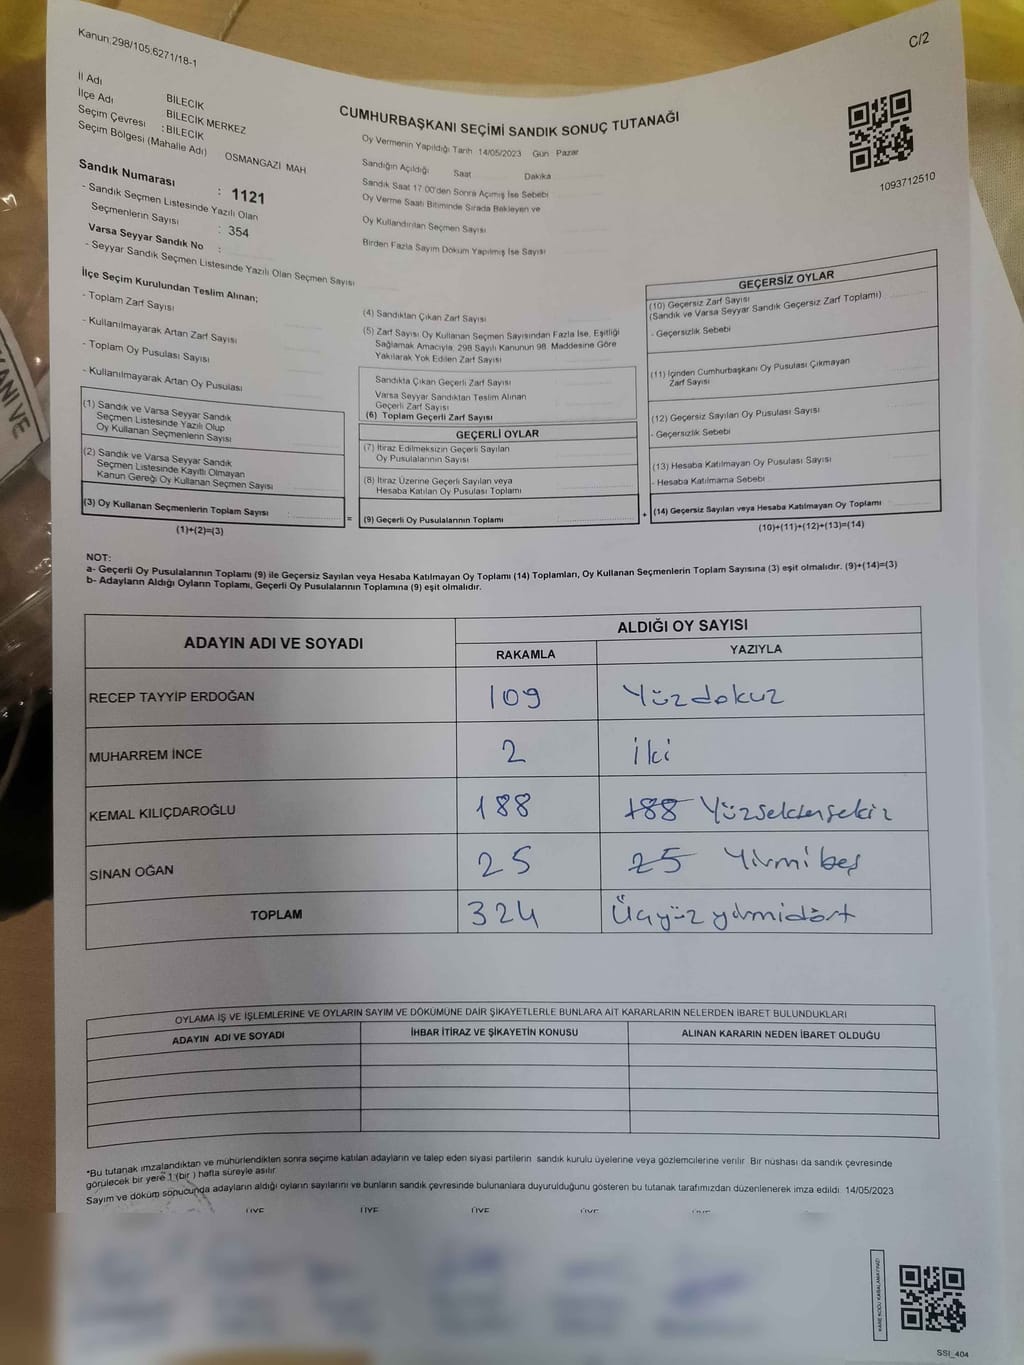 Kanun:298/105;6271/18-1
C/2
İl Adı BİLECİK
İlçe Adı BİLECİK MERKEZ
Seçim Çevresi : BİLECİK
Seçim Bölgesi (Mahalle Adı) OSMANGAZİ MAH
CUMHURBAŞKANI SEÇİMİ SANDIK SONUÇ TUTANAĞI
Oy Vermenin Yapıldığı Tarih 14/05/2023 Gün Pazar
Sandığın Açıldığı Saat Dakika
Sandık Saat 17.00'den Sonra Açımış İse Sebebi
Oy Verme Saati Bitiminde Sırada Bekleyen ve
Oy Kullandırılan Seçmen Sayısı
Birden Fazla Sayım Döküm Yapılmış İse Sayısı
1093712510
Sandık Numarası : 1121
- Sandık Seçmen Listesinde Yazılı Olan
Seçmenlerin Sayısı : 354
Varsa Seyyar Sandık No :
- Seyyar Sandık Seçmen Listesinde Yazılı Olan Seçmen Sayısı
İlçe Seçim Kurulundan Teslim Alınan;
- Toplam Zarf Sayısı
- Kullanılmayarak Artan Zarf Sayısı
- Toplam Oy Pusulası Sayısı
- Kullanılmayarak Artan Oy Pusulası
(1) Sandık ve Varsa Seyyar Sandık
Seçmen Listesinde Yazılı Olup
Oy Kullanan Seçmenlerin Sayısı
(2) Sandık ve Varsa Seyyar Sandık
Seçmen Listesinde Kayıtlı Olmayan
Kanun Gereği Oy Kullanan Seçmen Sayısı
(3) Oy Kullanan Seçmenlerin Toplam Sayısı :
(1)+(2)=(3)
=
(4) Sandıktan Çıkan Zarf Sayısı
(5) Zarf Sayısı Oy Kullanan Seçmen Sayısından Fazla İse, Eşitliği
Sağlamak Amacıyla, 298 Sayılı Kanunun 98. Maddesine Göre
Yakılarak Yok Edilen Zarf Sayısı
Sandıkta Çıkan Geçerli Zarf Sayısı
Varsa Seyyar Sandıktan Teslim Alınan
Geçerli Zarf Sayısı
(6) Toplam Geçerli Zarf Sayısı
GEÇERLİ OYLAR
(7) İtiraz Edilmeksizin Geçerli Sayılan
Oy Pusulalarının Sayısı
(8) İtiraz Üzerine Geçerli Sayılan veya
Hesaba Katılan Oy Pusulası Toplamı
(9) Geçerli Oy Pusulalarının Toplamı
+
GEÇERSİZ OYLAR
(10) Geçersiz Zarf Sayısı
(Sandık ve Varsa Seyyar Sandık Geçersiz Zarf Toplamı)
- Geçersizlik Sebebi
(11) İçinden Cumhurbaşkanı Oy Pusulası Çıkmayan
Zarf Sayısı
(12) Geçersiz Sayılan Oy Pusulası Sayısı
- Geçersizlik Sebebi
(13) Hesaba Katılmayan Oy Pusulası Sayısı
- Hesaba Katılmama Sebebi
(14) Geçersiz Sayılan veya Hesaba Katılmayan Oy Toplamı
(10)+(11)+(12)+(13)=(14)
NOT:
a- Geçerli Oy Pusulalarının Toplamı (9) ile Geçersiz Sayılan veya Hesaba Katılmayan Oy Toplamı (14) Toplamları, Oy Kullanan Seçmenlerin Toplam Sayısına (3) eşit olmalıdır. (9)+(14)=(3)
b- Adayların Aldığı Oyların Toplamı, Geçerli Oy Pusulalarının Toplamına (9) eşit olmalıdır.
ADAYIN ADI VE SOYADI ALDIĞI OY SAYISI
RAKAMLA YAZIYLA
RECEP TAYYİP ERDOĞAN 109 Yüzdokuz
MUHARREM İNCE 2 iki
KEMAL KILIÇDAROĞLU 188 188 Yüzseksensekiz
SİNAN OĞAN 25 25 Yirmibeş
TOPLAM 324 Üçyüzyirmidört
OYLAMA İŞ VE İŞLEMLERİNE VE OYLARIN SAYIM VE DÖKÜMÜNE DAİR ŞİKAYETLERLE BUNLARA AİT KARARLARIN NELERDEN İBARET BULUNDUKLARI
ADAYIN ADI VE SOYADI İHBAR İTİRAZ VE ŞİKAYETİN KONUSU ALINAN KARARIN NEDEN İBARET OLDUĞU
*Bu tutanak imzalandıktan ve mühürlendikten sonra seçime katılan adayların ve talep eden siyasi partilerin sandık kurulu üyelerine veya gözlemcilerine verilir. Bir nüshası da sandık çevresinde
görülecek bir yere 1 (bir ) hafta süreyle asılır.
Sayım ve döküm sonucunda adayların aldığı oyların sayılarını ve bunların sandık çevresinde bulunanlara duyurulduğunu gösteren bu tutanak tarafımızdan düzenlenerek imza edildi. 14/05/2023
ÜYE ÜYE ÜYE ÜYE ÜYE
KARE KODU KARALAMAYINIZ!
SSI_404